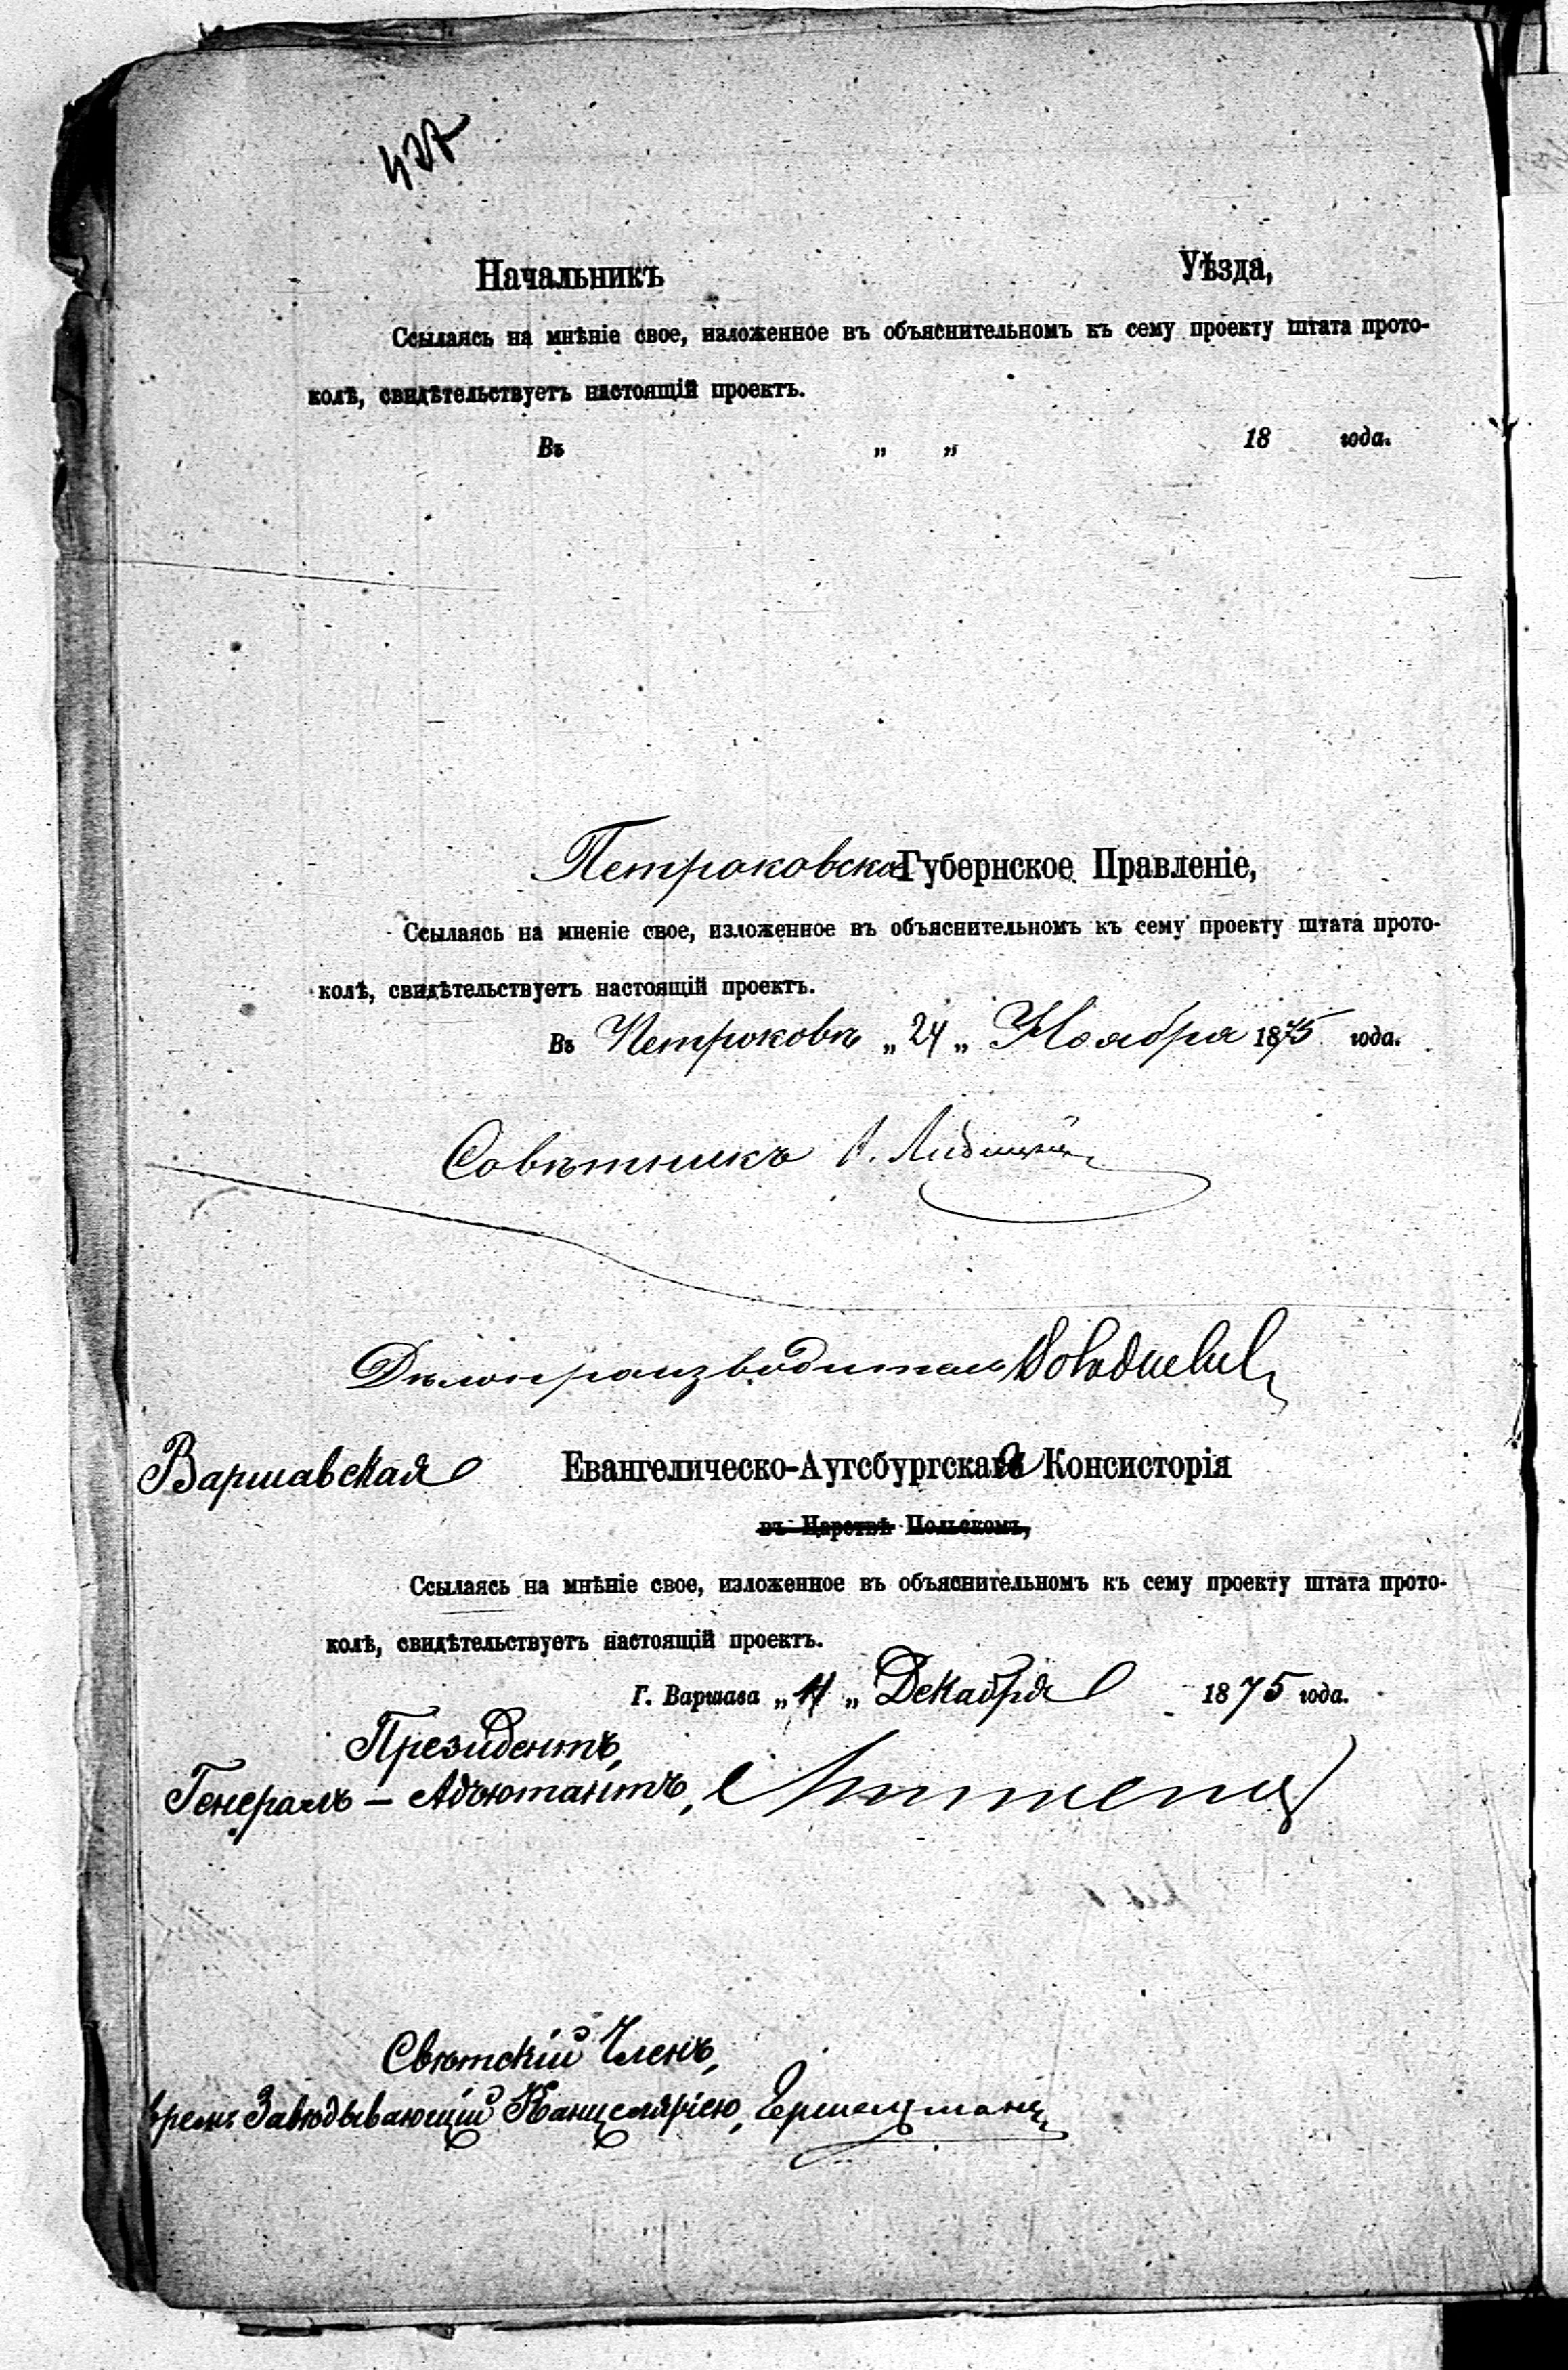 427
Начальникъ Уѣзда,
Ссылаясь на мнѣніе свое, изложенное въ объяснительномъ къ сему проекту штата прото-
колѣ, свидѣтельствуетъ настоящій проектъ.
Въ „ „ 18 года.
Петроковское Губернское Правленіе,
Ссылаясь на мненіе свое, изложенное въ объяснительномъ къ сему проекту штата прото-
колѣ, свидѣтельствуетъ настоящій проектъ.
Въ Петроковѣ „ 24 „ Ноября 1875 года.
Совѣтникъ
Дѣлопроизводитель
Варшавская Евангелическо-Аугсбургская Консисторія
въ Царствѣ Польскомъ,
Ссылаясь на мнѣніе свое, изложенное въ объяснительномъ къ сему проекту штата прото-
колѣ, свидѣтельствуетъ настоящій проектъ.
Г. Варшава „ 11 „ Декабря 1875 года.
Президентъ,
Генералъ – Адъютантъ,
Свѣтскій Членъ,
врем: Завѣдывающій Канцеляріею,